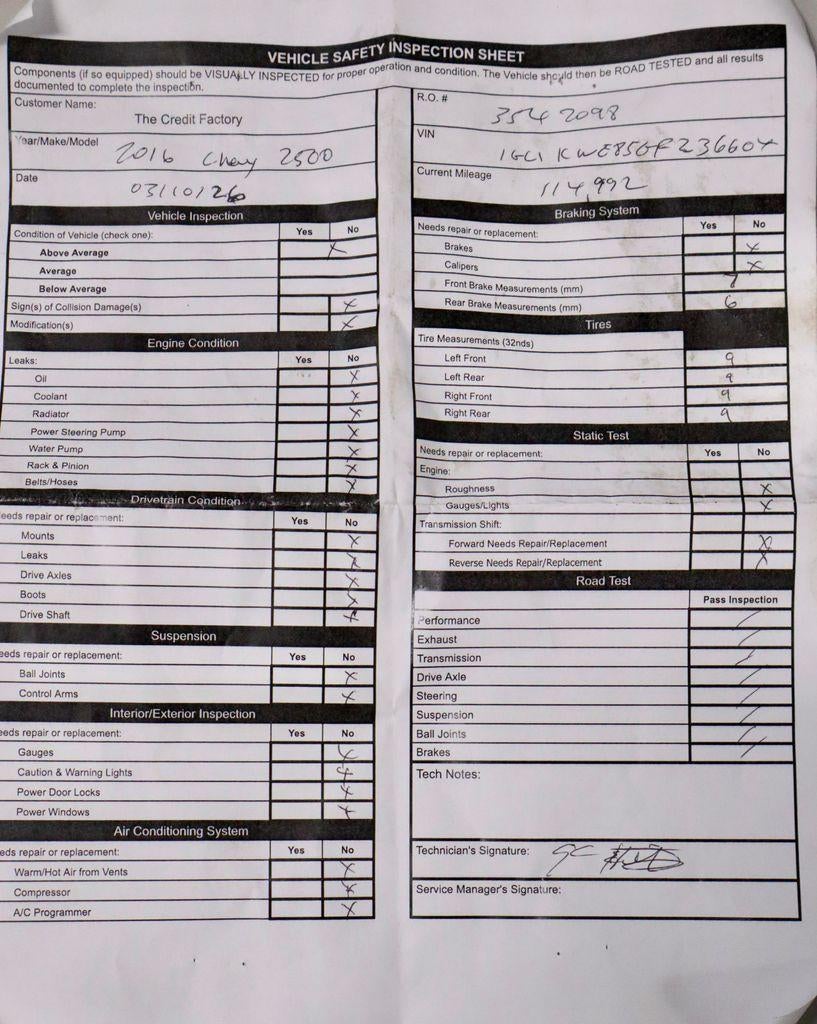 VEHICLE SAFETY INSPECTION SHEET
Components (if so equipped) should be VISUALLY INSPECTED for proper operation and condition. The Vehicle should then be ROAD TESTED and all results
documented to complete the inspection.
Customer Name:
The Credit Factory
Year/Make/Model
2016 Chevy 2500
Date
03/10/26
Vehicle Inspection
Condition of Vehicle (check one): Yes No
Above Average X
Average
Below Average
Sign(s) of Collision Damage(s) X
Modification(s) X
Engine Condition
Leaks: Yes No
Oil X
Coolant X
Radiator X
Power Steering Pump X
Water Pump X
Rack & Pinion X
Belts/Hoses X
Drivetrain Condition
eeds repair or replacement: Yes No
Mounts X
Leaks X
Drive Axles X
Boots X
Drive Shaft X
Suspension
eeds repair or replacement: Yes No
Ball Joints X
Control Arms X
Interior/Exterior Inspection
eeds repair or replacement: Yes No
Gauges X
Caution & Warning Lights X
Power Door Locks X
Power Windows X
Air Conditioning System
eds repair or replacement: Yes No
Warm/Hot Air from Vents X
Compressor X
A/C Programmer X
R.O. #
3542098
VIN
Current Mileage
114,992
Braking System
Needs repair or replacement: Yes No
Brakes X
Calipers X
Front Brake Measurements (mm) 7
Rear Brake Measurements (mm) 6
Tires
Tire Measurements (32nds)
Left Front 9
Left Rear 9
Right Front 9
Right Rear 9
Static Test
Needs repair or replacement: Yes No
Engine:
Roughness X
Gauges/Lights X
Transmission Shift:
Forward Needs Repair/Replacement X
Reverse Needs Repair/Replacement X
Road Test
Pass Inspection
Performance /
Exhaust /
Transmission /
Drive Axle /
Steering /
Suspension /
Ball Joints /
Brakes /
Tech Notes:
Technician's Signature:
Service Manager's Signature: